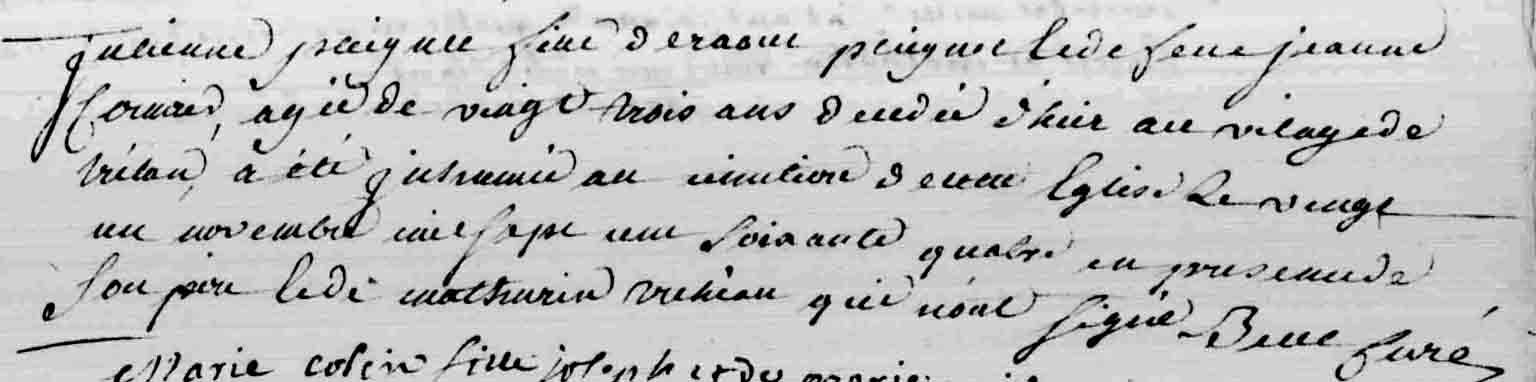 julienne peignée fille de raoul peignée & de feue jeanne
Cormier, agée de vingt trois ans decedée d'hier au vilage de
trélan, a été jnhumée au cimitiere de cette Eglise Le vingt
un novembre mil sept cent soixante quatre en presence de
son pere & de mathurin qui n'ont signé curé
Marie colin fille joseph et de marie